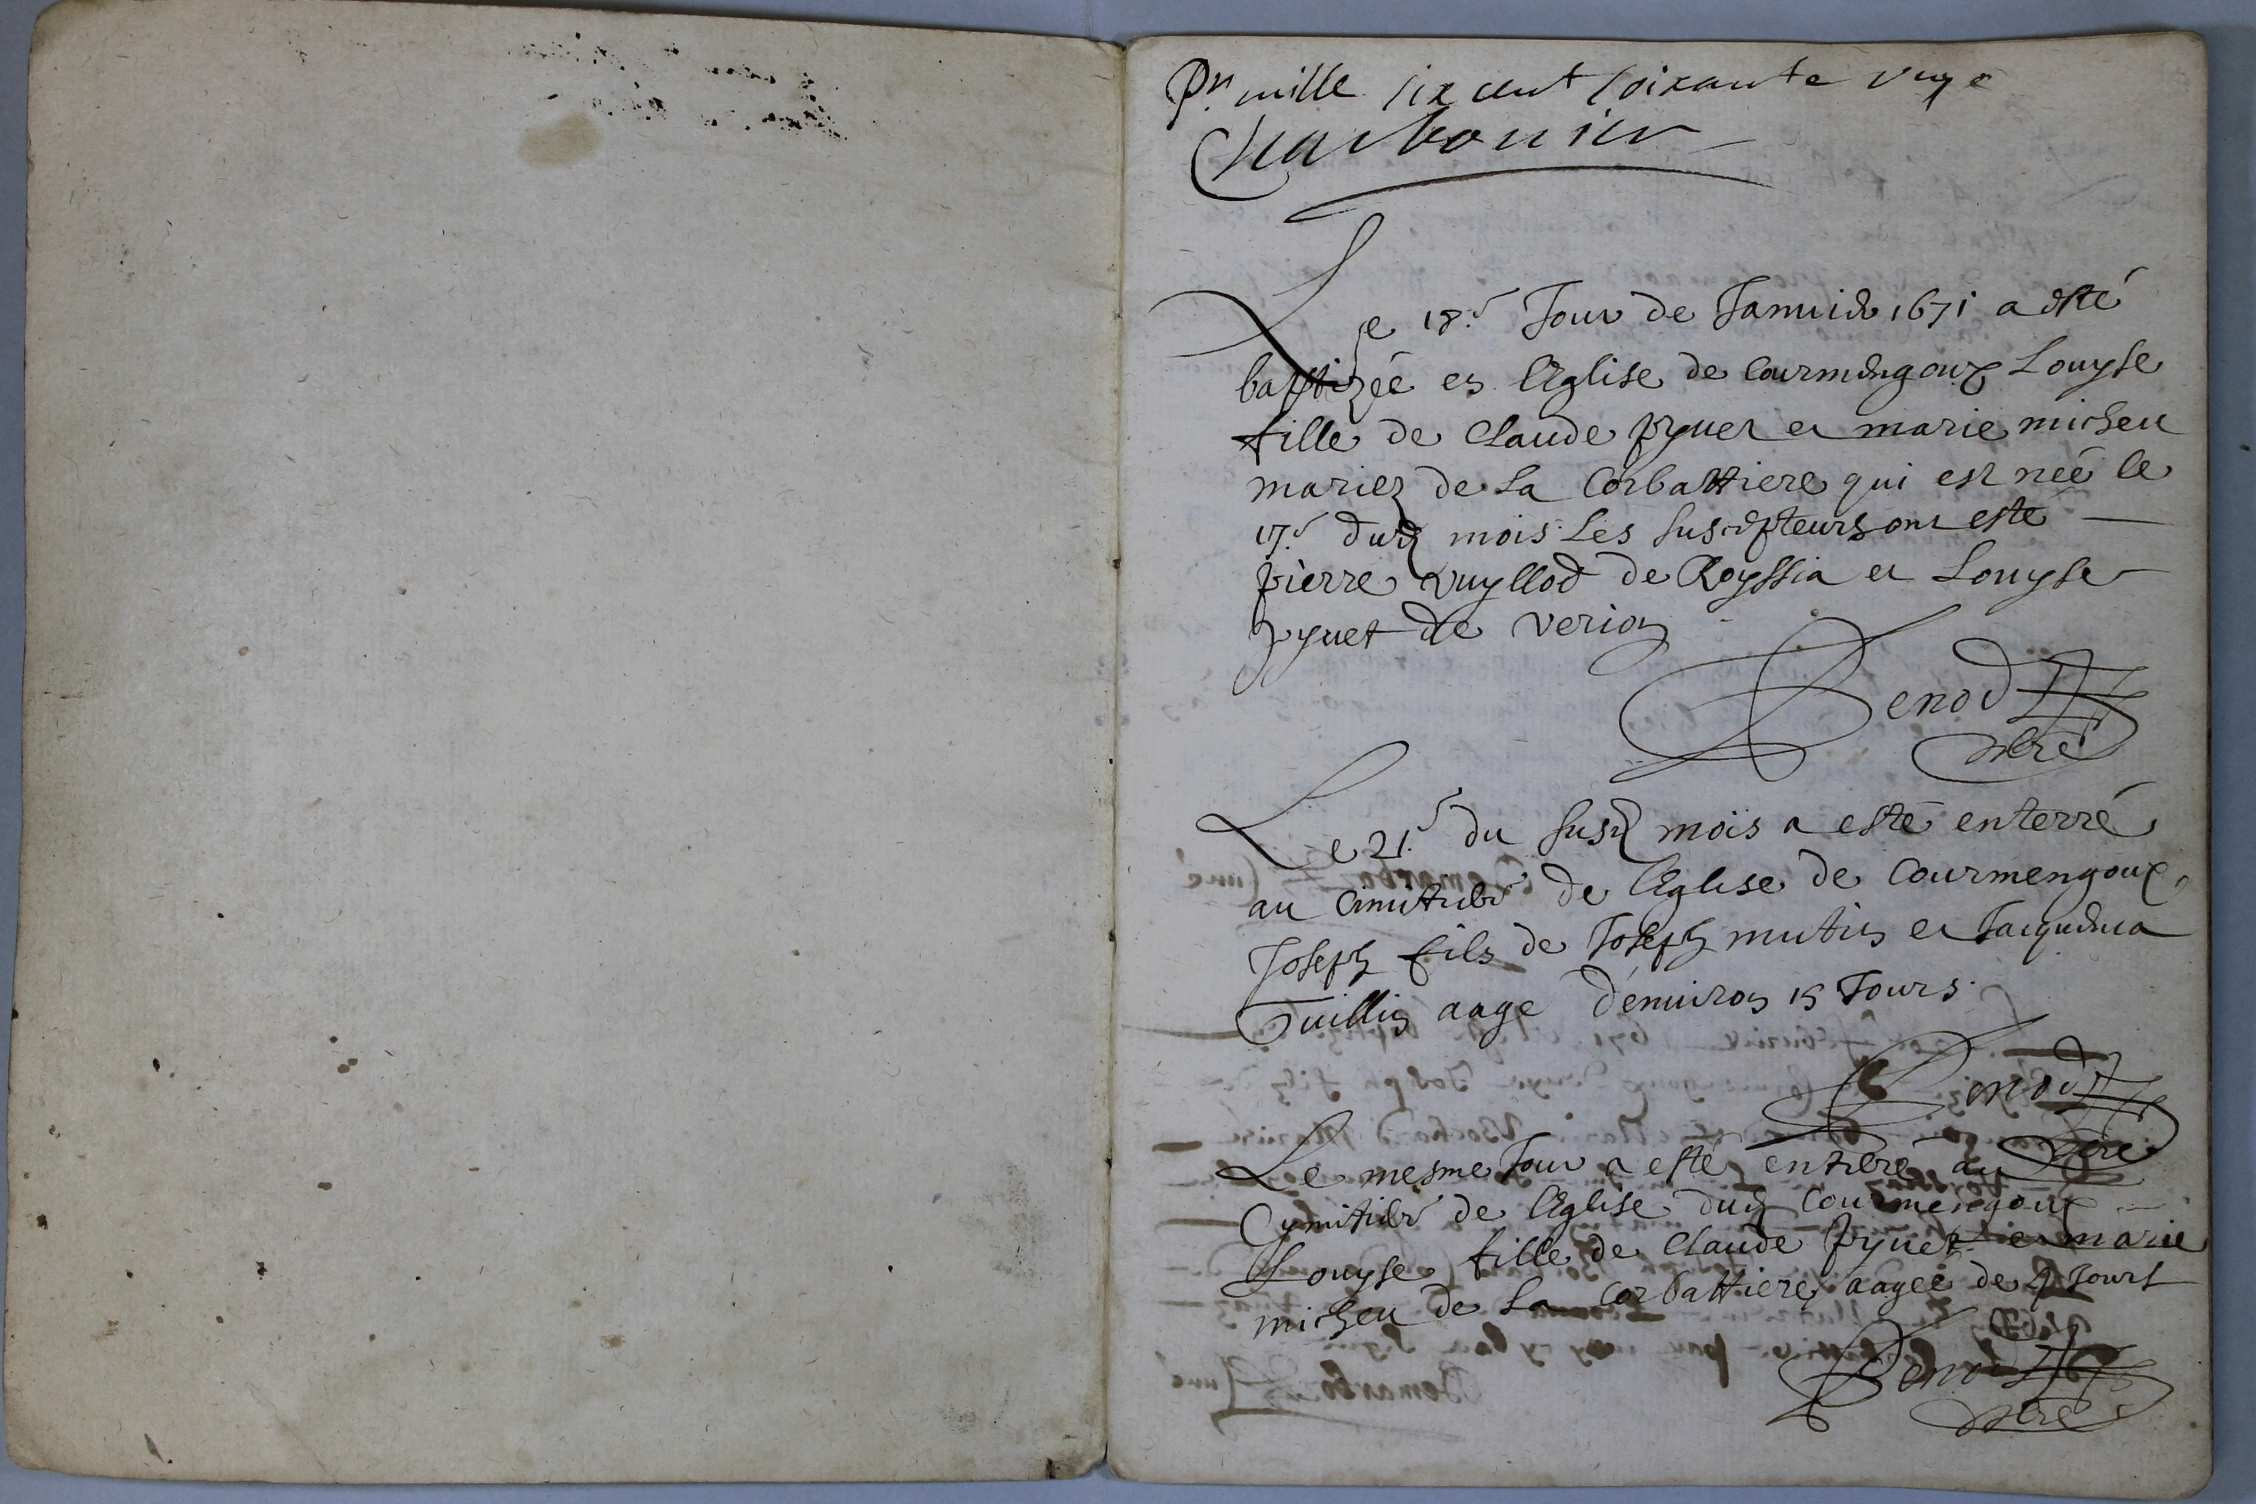 Pr mille six cent soixante unze
Charbonier
Le 18.e Jour de Januier 1671 a esté
baptizée en l'Eglise de Courmengoux Louyse
fille de Claude pyuet et marie micheu
mariez de la Corbattiere qui est neé le
17.e dud mois Les suscepteurs ont esté
pierre vuyllod de Royssia et Louyse
pyuet de verion
Benod
ptre
Le 21.e du susd mois a esté enterré
au Cimitiere de l'Eglise de Courmengoux
Joseph fils de Joseph mutin et Jaquema
Tuillin aage d'enuiron 15 Jours
Benod
ptre
Le mesme Jour a esté enterré au
Cymitiere de l'Eglise dud Courmengoux
Louyse fille de Claude pyuet et marie
micheu de la corbattiere aageé de 4 Jours
Benod
ptre